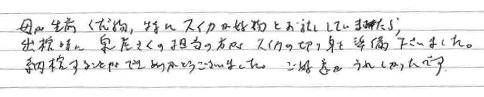 母が生前くだ物、特にスイカが好物とお話ししていましたら、
出棺時に泉屋さんの担当の方がスイカの切り身を準備下さいました。
納棺することができありがとうございました。ご好意がうれしかったです。